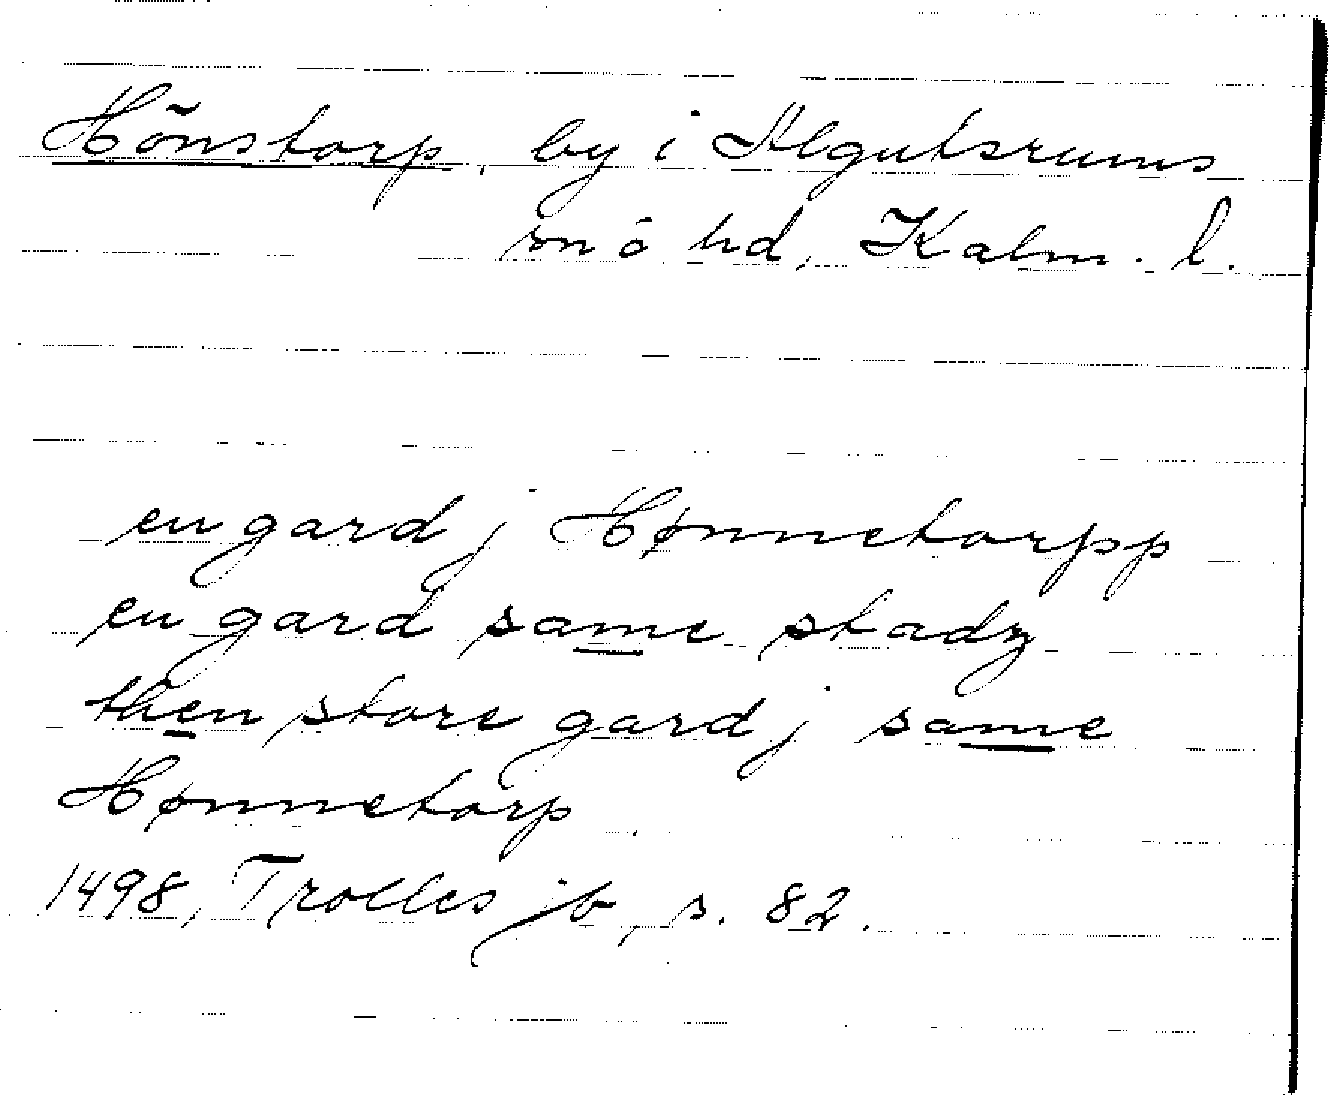 Hönstorp, by i Algutsrums
sn ö hd, Kalm. l.
en gard j Hønnetorpp
en gard same stadz
then store gard j same
Hønnetorp
1498, Trolles jb, s. 82.